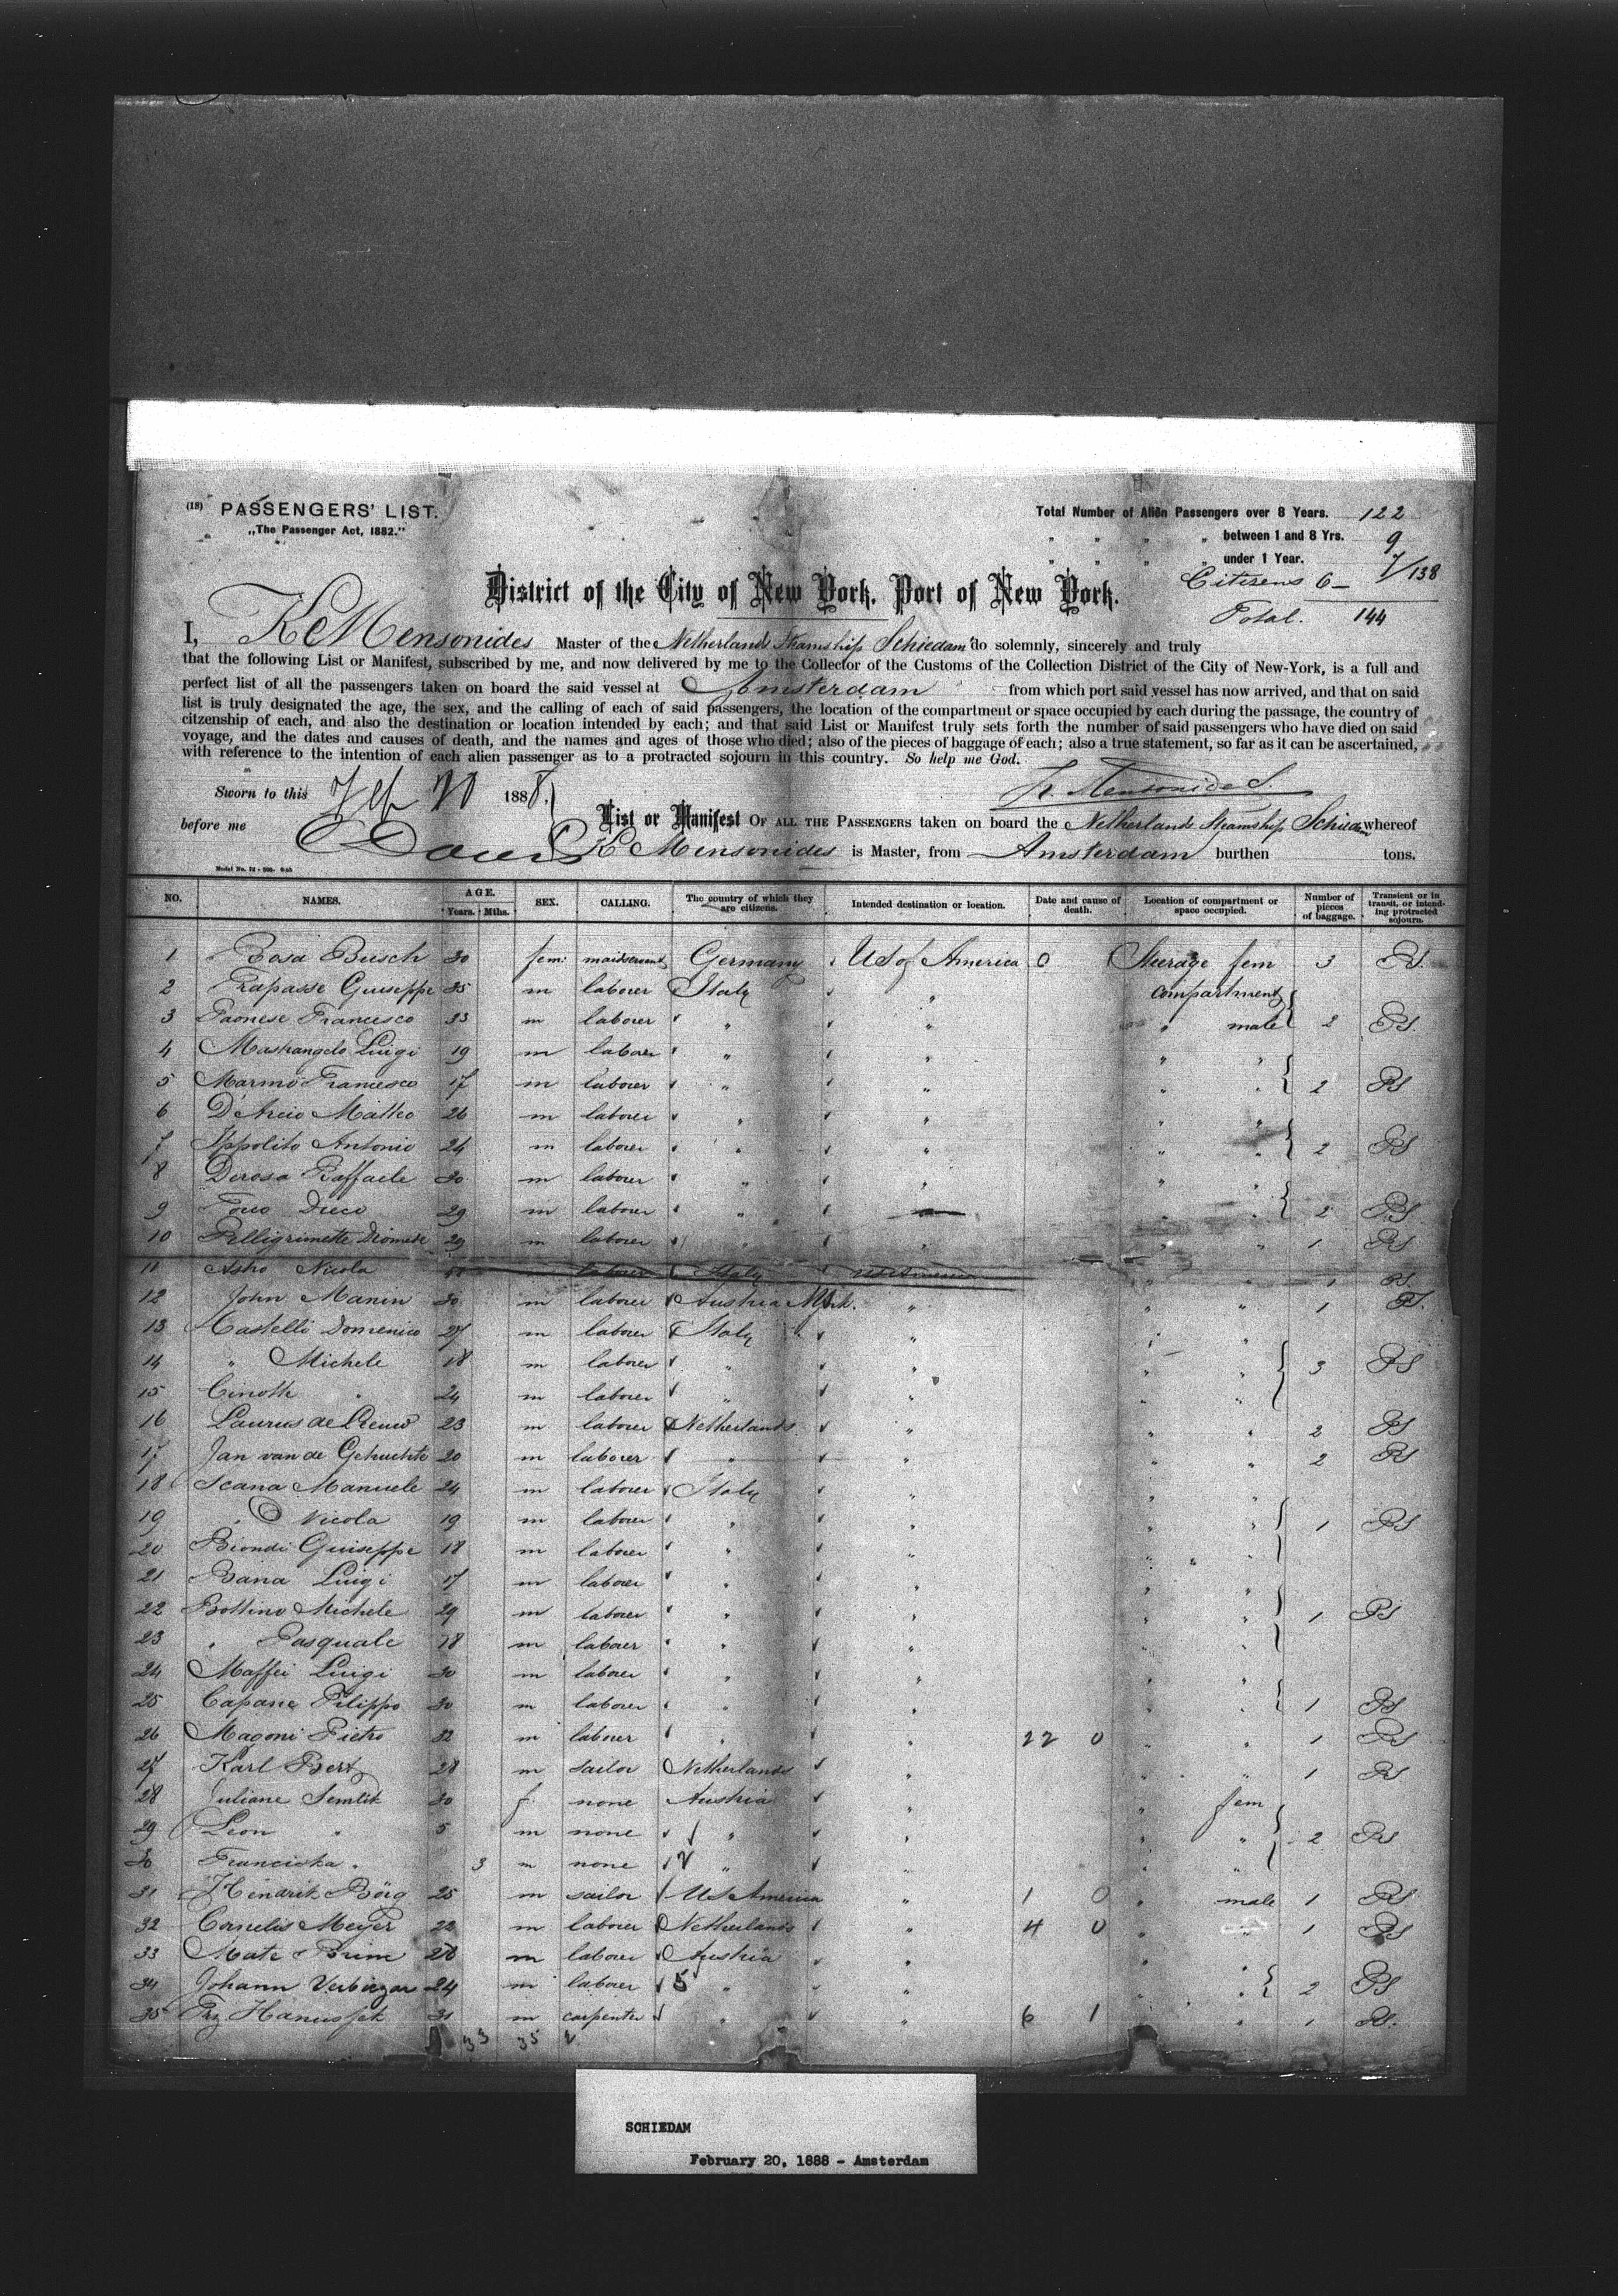 (18) PASSENGERS' LIST.
„The Passenger Act, 1882."
Total Number of Alien Passengers over 8 Years. 122
" " " " between 1 and 8 Yrs. 9
" " " " under 1 Year. 7/138
Citizens 6 —
Total. 144
District of the City of New York, Port of New York.
I, K Mensonides Master of the Netherland Steamship Schiedam do solemnly, sincerely and truly
that the following List or Manifest, subscribed by me, and now delivered by me to the Collector of the Customs of the Collection District of the City of New-York, is a full and
perfect list of all the passengers taken on board the said vessel at Amsterdam from which port said vessel has now arrived, and that on said
list is truly designated the age, the sex, and the calling of each of said passengers, the location of the compartment or space occupied by each during the passage, the country of
citzenship of each, and also the destination or location intended by each; and that said List or Manifest truly sets forth the number of said passengers who have died on said
voyage, and the dates and causes of death, and the names and ages of those who died; also of the pieces of baggage of each; also a true statement, so far as it can be ascertained,
with reference to the intention of each alien passenger as to a protracted sojourn in this country. So help me God.
K. Mensonides.
Sworn to this Feb 20 1888,
before me
List or Manifest OF ALL THE PASSENGERS taken on board the Netherland Steamship Schiedam whereof
K Mensonides is Master, from Amsterdam burthen tons.
NO. NAMES. AGE. Years. Mths. SEX. CALLING. The country of which they are citizens. Intended destination or location. Date and cause of death. Location of compartment or space occupied. Number of pieces of baggage. Transient or in transit, or intending protracted sojourn.
1 Rosa Busch 30 fem: maidservant Germany US of America 0 Steerage fem 3 PS.
2 Trapasse Guiseppe 35 m laborer Italy " compartment
3 Paonese Francesco 33 m laborer " " " male 2 PS.
4 Mastrangelo Luigi 19 m laborer " " " "
5 Marmo Francesco 17 m laborer " " " " 2 PS
6 Matteo 26 m laborer " " " "
7 Ippolito Antonio 24 m laborer " " " " 2 PS
8 Derosa Raffaele 30 m laborer " " " "
9 29 m laborer " " " 2 PS
10 Pelligrinette Diomede 29 m laborer " " " " 1 PS
11 Nicola laborer Italy US America " " 1 PS.
12 John Manen 30 m laborer Austria " " " 1 PS.
13 Castelli Domenico 27 m laborer Italy " " "
14 " Michele 18 m laborer " " " " 3 PS
15 24 m laborer " " " "
16 Laurus de 23 m laborer Netherlands " " " 2 PS
17 Jan van de Gehuchte 20 m laborer " " " " 2 PS
18 Scana Manuele 24 m laborer Italy " " "
19 " Nicola 19 m laborer " " " " 1 PS
20 Biondi Guiseppe 18 m laborer " " " "
21 Bana Luigi 17 m laborer " " " "
22 Bottino Michele 29 m laborer " " " " 1 PS
23 " Pasquale 18 m laborer " " " "
24 Maffei Luigi 30 m laborer " " " "
25 Capane Filippo 30 m laborer " " " " 1 PS
26 Magoni Pietro 32 m laborer " " 22 0 " " 1 PS
27 Karl Bert 28 m sailor Netherlands " " " 1 PS
28 Juliane Semlik 30 f. none Austria " " fem
29 Leon " 5 m none " " " " 2 PS
30 Franciska " 3 m none " " " "
31 Hendrik Börg 25 m sailor US America " 1 0 " male 1 PS
32 Cornelis Meyer 22 m laborer Netherlands " 4 0 " " 1 PS
33 Mate Brim 28 m laborer Austria " " "
34 Johann 24 m laborer 5 " " " " 2 PS
35 31 m carpenter " " 6 1 " " 1 PS.
33 35
SCHIEDAM
February 20, 1888 - Amsterdam